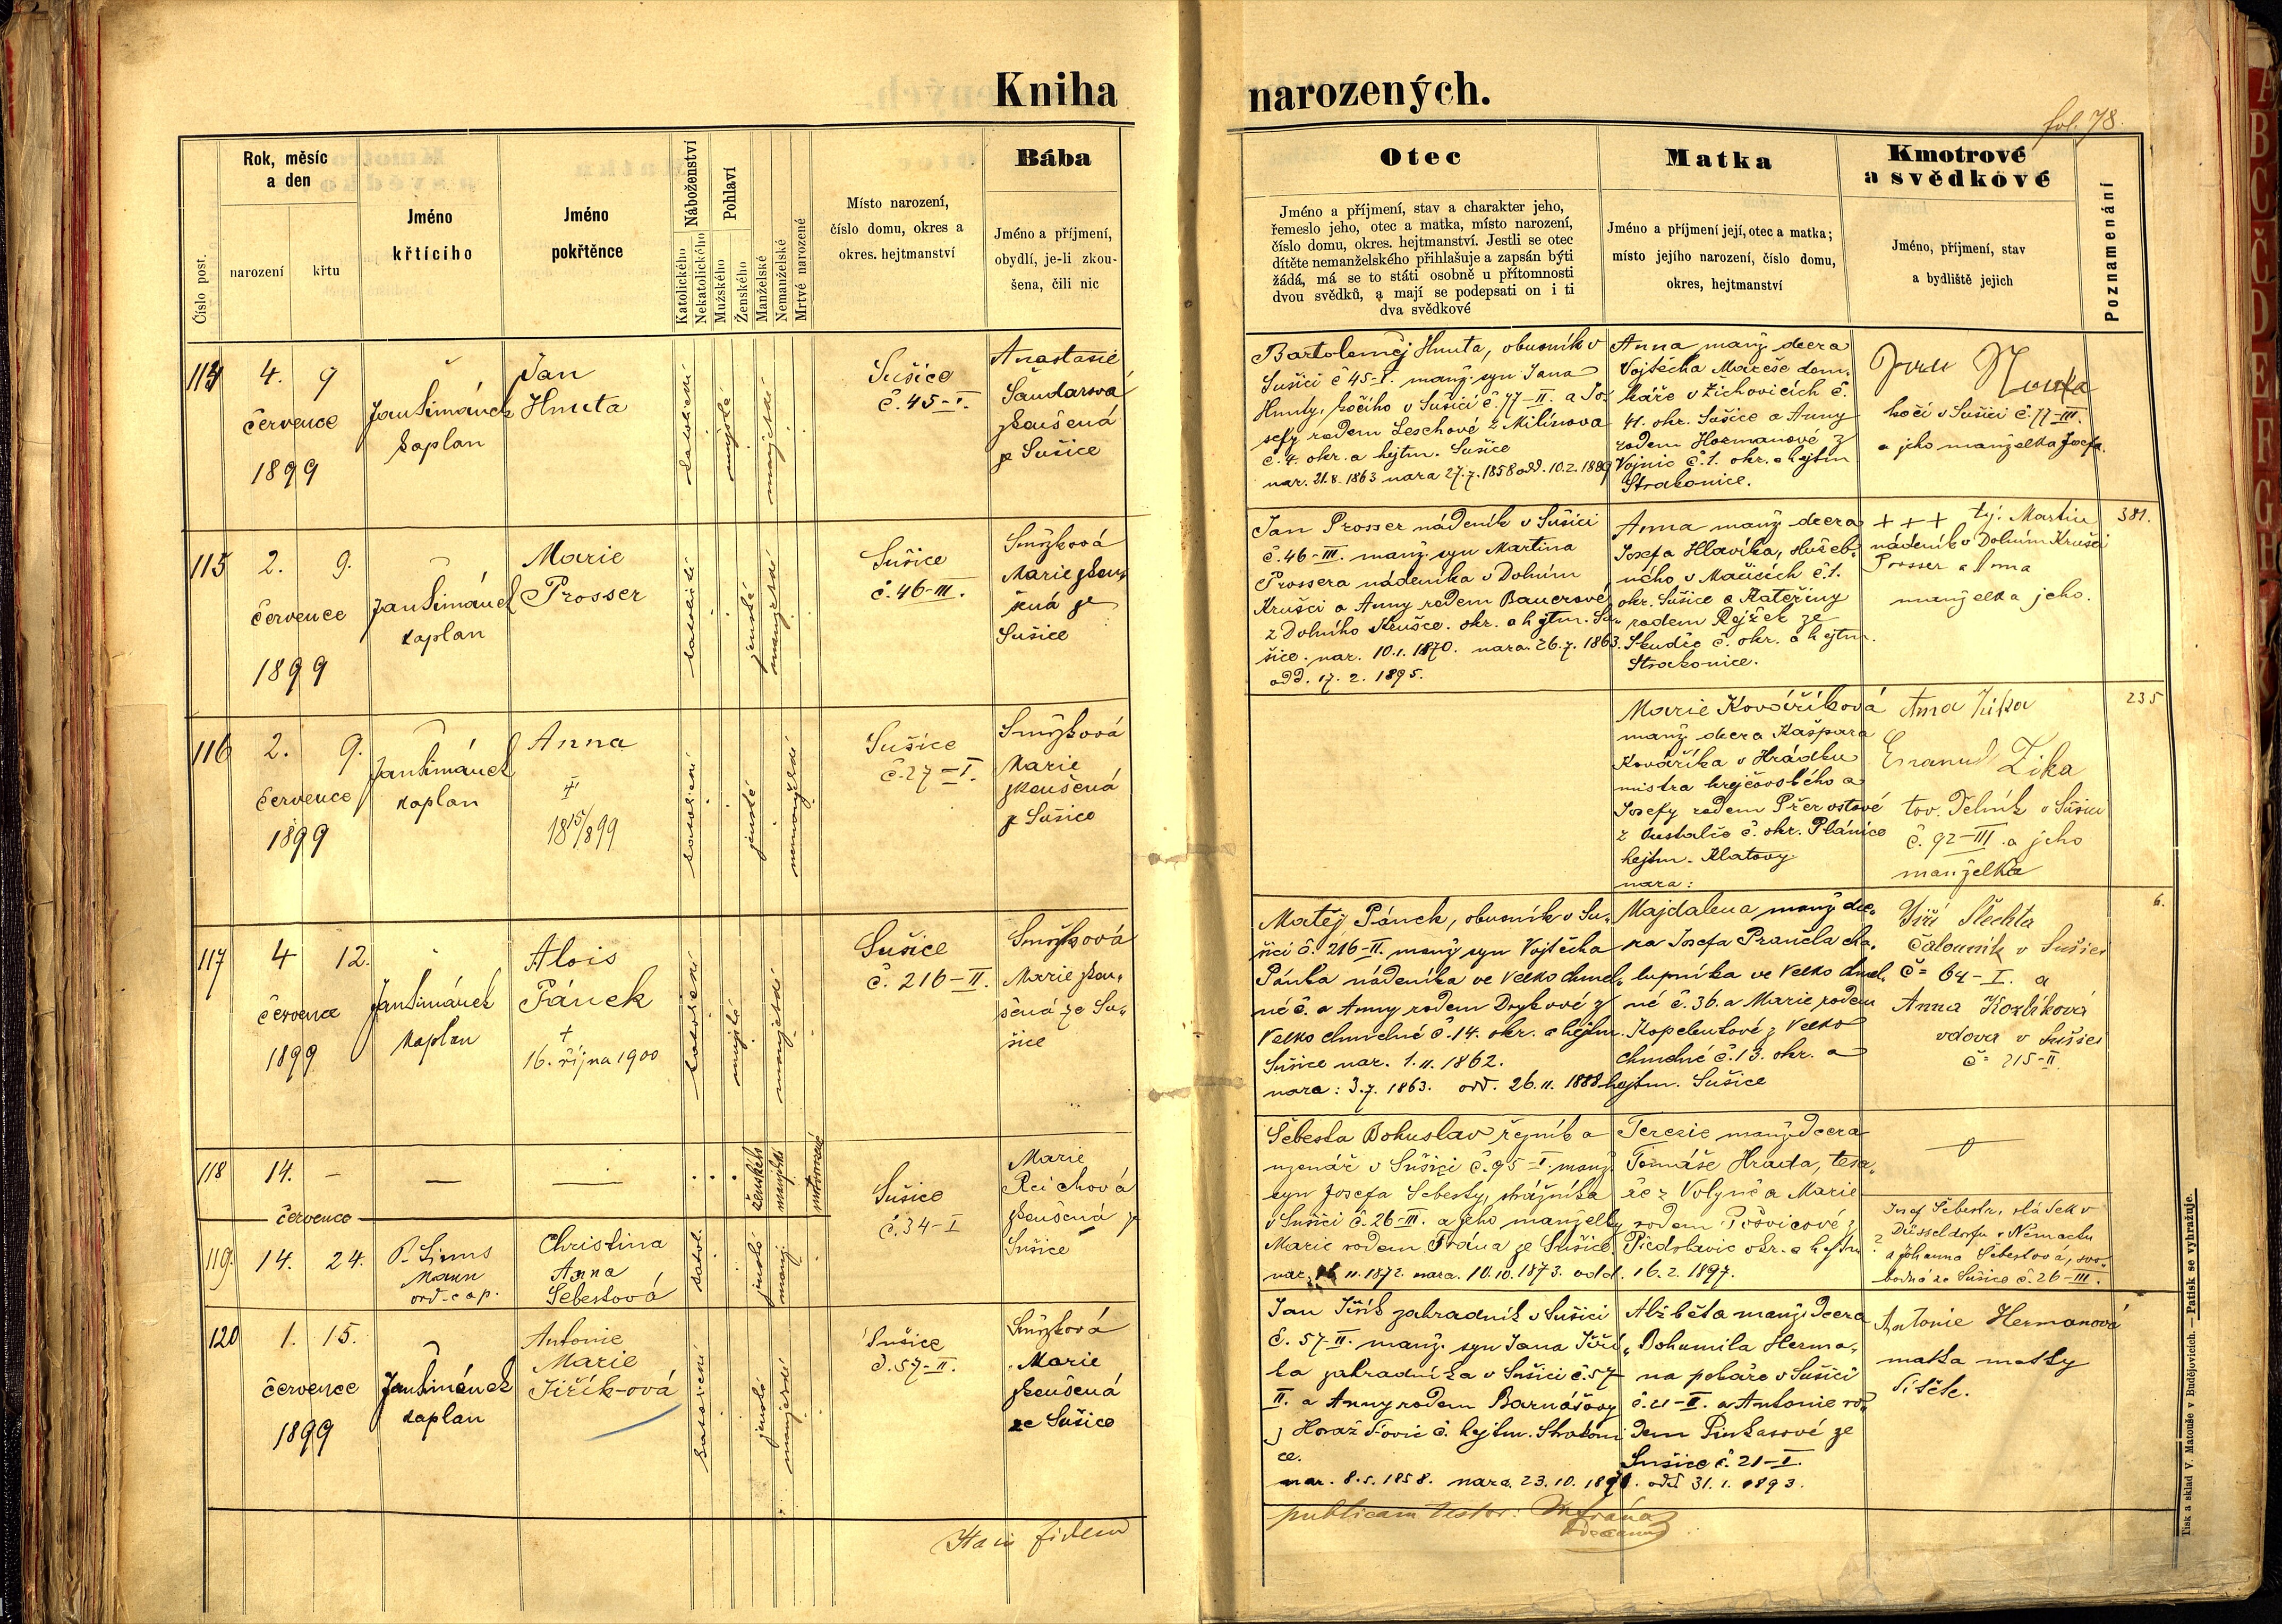 Kniha narozených.
fol. 78.
Číslo post.
Rok, měsíc
a den
narození
křtu
Jméno
křtícího
Jméno
pokřtěnce
Náboženství
Katolického
Nekatolického
Pohlaví
Mužského
Ženského
Manželské
Nemanželské
Mrtvě narozené
Místo narození,
číslo domu, okres a
okres. hejtmanství
Bába
Jméno a příjmení,
obydlí, je-li zkou-
šena, čili nic
Otec
Jméno a příjmení, stav a charakter jeho,
řemeslo jeho, otec a matka, místo narození,
číslo domu, okres. hejtmanství. Jestli se otec
dítěte nemanželského přihlašuje a zapsán býti
žádá, má se to státi osobně u přítomnosti
dvou svědků, a mají se podepsati on i ti
dva svědkové
Matka
Jméno a příjmení její, otec a matka;
místo jejího narození, číslo domu,
okres, hejtmanství
Kmotrové
a svědkové
Jméno, příjmení, stav
a bydliště jejich
Poznamenání
114
4. 9
července
1899
Jan Šimánek
kaplan
Jan
Hnuta
katolické
mužské
manželské
Sušice
č. 45-I.
Anastasie
Šandarová
zkoušená
ze Sušice
Bartoloměj Hnuta, obuvník v
Sušici č 45-I. manž. syn Jana
Hnuty, kočího v Sušici č. 77-II. a Jo-
sefy rodem Leschové z Milínova
č. 4. okr. a hejtm. Sušice
nar. 21.8.1863 nara 27.7.1858 odd. 10.2.1889
Anna manž dcera
Vojtěcha Mareše dom-
káře v Žichovicích č.
41. okr. Sušice a Anny
rodem Hormanové z
Vojnic č. 1. okr. a hejtm
Strakonice.
Jan Hnuta
kočí v Sušici č. 77-III.
a jeho manželka Josefa.
115
2. 9.
července
1899
Jan Šimánek
kaplan
Marie
Prosser
katolické
ženské
manželské
Sušice
č. 46-III.
Smržková
Marie zkou-
šená ze
Sušice
Jan Prosser nádeník v Sušici
č. 46-III. manž. syn Martina
Prossera nádeníka v Dolním
Krušci a Anny rodem Bauerové
z Dolního Krušce. okr. a hejtm. Su-
šice. nar. 10.1.1870. nara. 26.7.1863.
odd. 17. 2. 1895.
Anna manž dcera
Josefa Hlavíka, služeb-
ného v Mačicích č. 1.
okr. Sušice a Kateřiny
rodem Rejžek ze
Skudře č. okr. a hejtm.
Strakonice.
+++ tj. Martin
nádeník v Dolním Krušci
Prosser a Anna
manželka jeho.
381.
116
2. 9.
července
1899
Jan Šimánek
kaplan
Anna
†
18 15/8 99
katolické
ženské
nemanželské
Sušice
č. 27-I.
Smržková
Marie
zkoušená
z Sušice
Marie Kovaříková
manž dcera Kašpara
Kovaříka v Hrádku
mistra krejčovského a
Josefy rodem
č. okr. Plánice
hejtm. Klatovy
nara:
Anna Zika
Emanuel Zika
tov. dělník v Sušici
č. 92-III a jeho
manželka
235
117
4 12.
července
1899
Jan Šimánek
kaplan
Alois
Pánek
†
16. října 1900
katolické
mužské
manželské
Sušice
č. 216-II.
Smržková
Marie zkou-
šená ze Su-
šice
Matěj Pánek, obuvník v Su-
šici č. 216-II. manž syn Vojtěcha
Pánka nádeníka ve Velko chmel-
né č. a Anny rodem Drykové z
Velko chmelné č. 14. okr. a hejtm.
Sušice nar. 1. 11. 1862.
nara: 3.7. 1863. odd. 26. 11. 1888
Majdalena manž dce-
ra Josefa Prančla cha-
lupníka ve Velko chmel-
né č. 36. a Marie rodem
Kopelentové z Velko
chmelné č. 13. okr. a
hejtm. Sušice
Jiří Šlechta
čalouník v Sušici
č= 64-I. a
Anna Kozlíková
vdova v Sušici
č= 215-II.
6.
118
14. —
—
—
července
ženského
manželské
Sušice
č. 34-I
Marie
Reichová
zkoušená z
Sušice
Šebesta Bohuslav řezník a
uzenář v Sušici č. 95-I. manž.
syn Josefa Šebesty, strážníka
v Sušici č. 26-III. a jeho manželky
Marie rodem Frána ze Sušice.
nar. 11. 1872. nara. 10.10.1873. odd. 16. 2. 1897.
Terezie manž. dcera
Tomáše Hrada, tesa-
ře z Volyně a Marie
rodem Pošvicové z
Předslavic okr. a hejtm
119.
14. 24.
P. Linus
Mann
ord. cap.
Christina
Anna
Šebestová
katol.
ženské
manž.
Josef Šebesta, sládek v
Düsseldorfu v Německu
a Johanna Šebestová, svo-
bodná ze Sušice č. 26-III.
120
1. 15.
července
1899
Jan Šimánek
kaplan
Antonie
Marie
Jiřík-ová
katolické
ženské
manželské
Sušice
č. 57-II.
Smržková
Marie
zkoušená
ze Sušice
Jan Jiřík zahradník v Sušici
č. 57-II. manž. syn Jana Jiří-
ka zahradníka v Sušici č. 57
II. a Anny rodem Barnášovy
z Horažďovic č. hejtm. Strakoni
ce.
nar. 8.5. 1858. nara. 23. 10. 1870. odd 31. 1. 1893.
Alžběta manž. dcera
Bohumila Herma-
na pekaře v Sušici
č. 21-I. a Antonie ro-
dem Pinkasové ze
Sušice č. 21-I.
Antonie Hermanová
matka matky
dítěte.
Ita in fidem
publicam testor: M. Frána
decanus
Tisk a sklad V. Matouše v Budějovicích. — Patisk se vyhražuje.